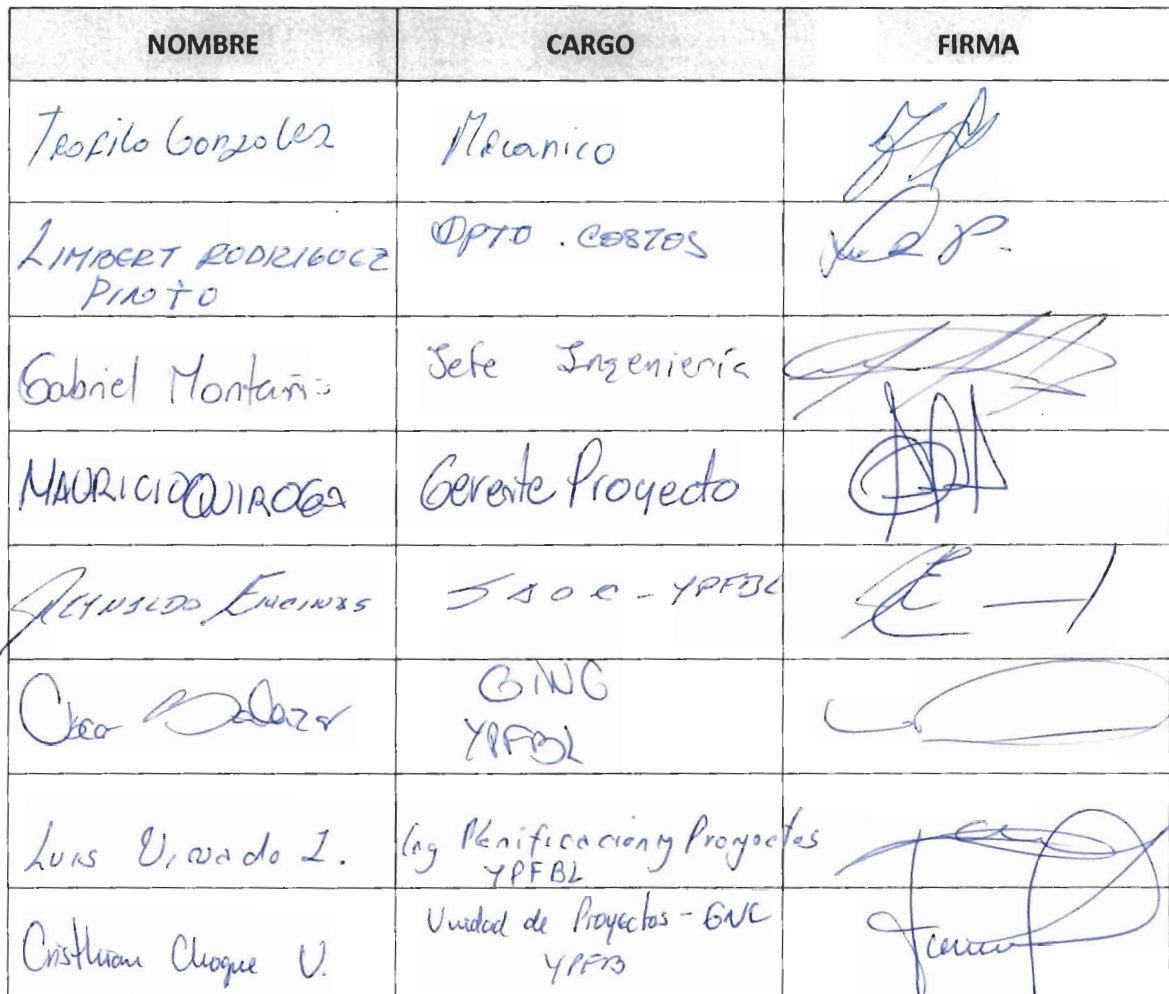 NOMBRE CARGO FIRMA
Teofilo Gonzolez Mecanico
LIMBERT RODRIGUEZ DPTO. COSTOS
PINTO
Gabriel Montaño Jefe Ingeniería
MAURICIO QUIROGA Gerente Proyecto
REYNALDO ENCINAS YPFBL
Salazar GING
YPFBL
Luis Ing Planificacion y Proyectos
YPFBL
Cristhian Choque V. Unidad de Proyectos - GNC
YPFB